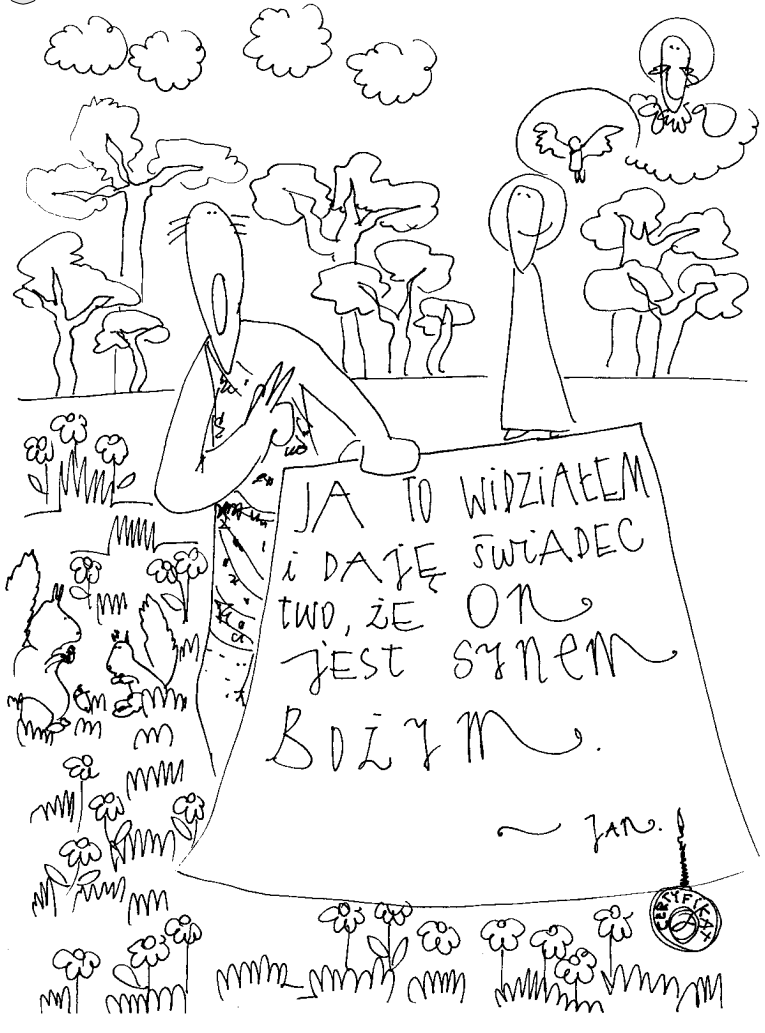 JA TO WIDZIAŁEM
i DAJĘ ŚWIADEC
TWO, ŻE ON
JEST SYNEM
BOŻYM.
~ JAN.
CERTYFIKAT